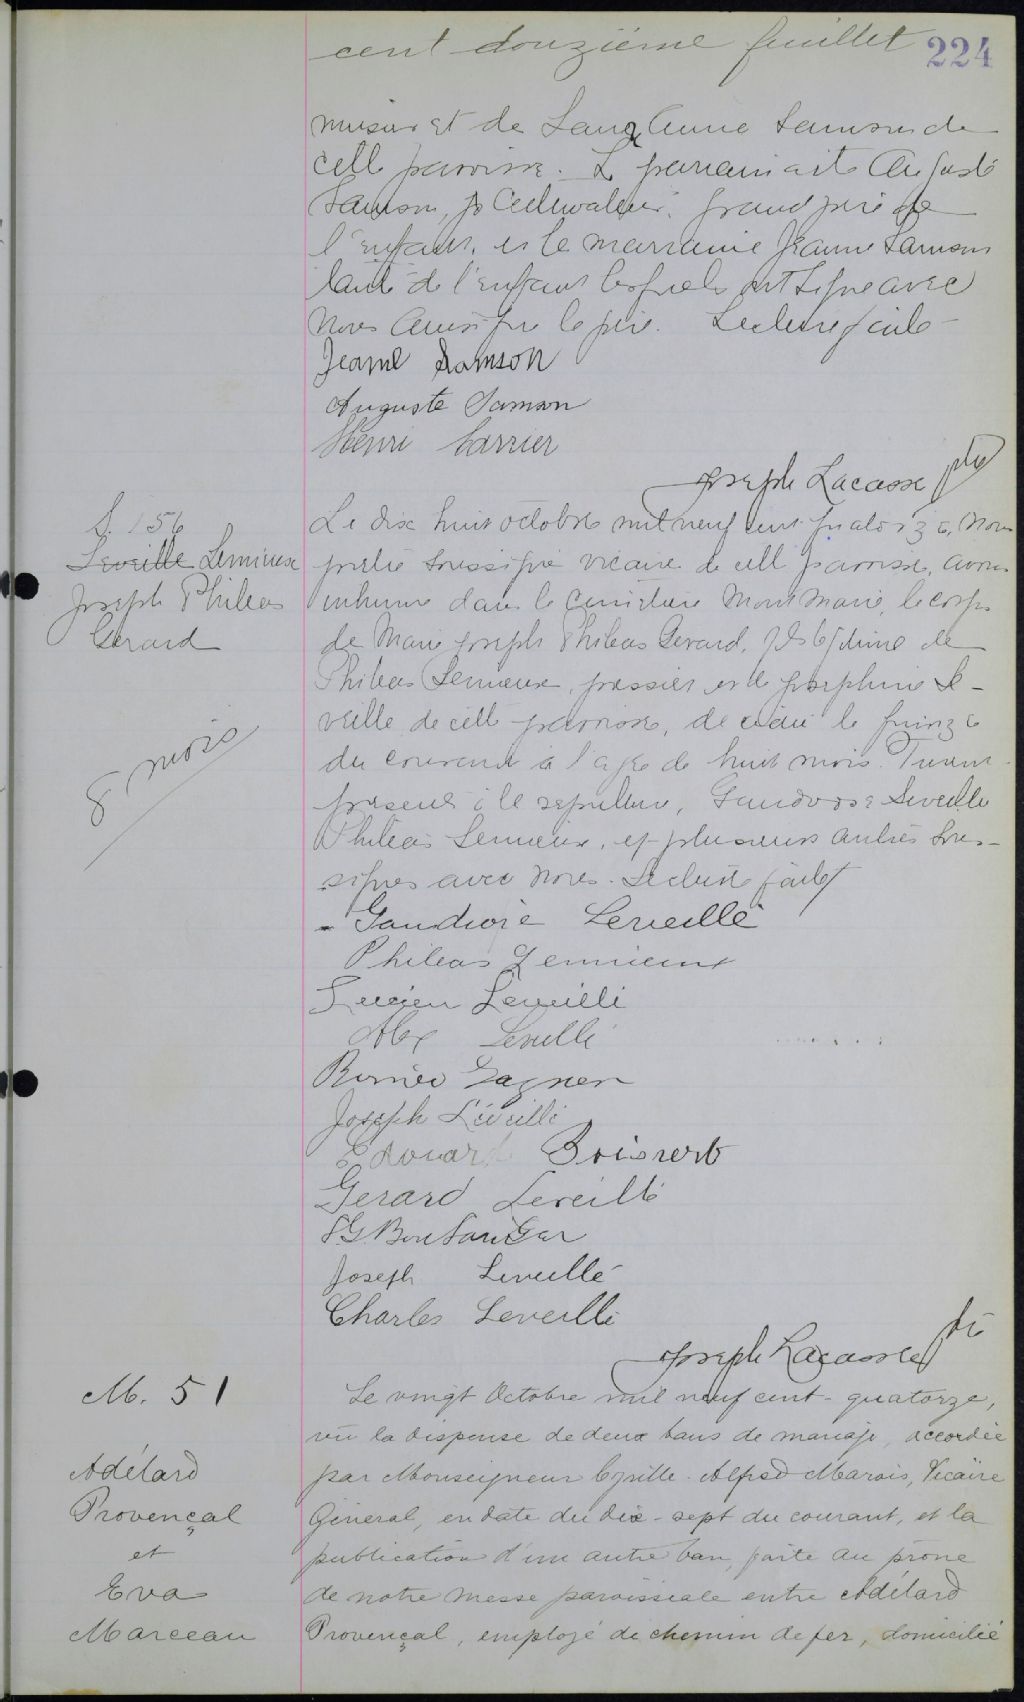 cent douzième feuillet 224
et de Anna Samson de
cette paroisse. Le parrain a été Auguste
Samson, grand père de
l'enfant, et la marraine Jeanne Samson
tante de l'enfant lesquels ont signé avec
nous ainsi que le père. Lecture faite
Jeanne Samson
Auguste Samson
Henri Carrier
Joseph Lacasse ptre
S. 156
Leveille Lemieux
Joseph Phileas
Gerard
8 mois
Le dix huit octobre mil neuf cent quatorze, nous
prêtre soussigné vicaire de cette paroisse, avons
inhumé dans le cimetière Mont Marie, le corps
de Marie Joseph Phileas Gerard, fils légitime de
Phileas Lemieux, et de Josephine Le-
veille de cette paroisse, décédé le quinze
du courant à l'age de huit mois. Furent
présents à la sepulture, Gaudiose Leveille
Phileas Lemieux, et plusieurs autres sous-
signés avec nous. Lecture faite
Gaudiose Leveillé
Phileas Lemieux
Lucien Leveille
Alex Leveille
Roméo Gagnon
Joseph Léveillé
Edouard Boisvert
Gerard Leveillé
Joseph Leveillé
Charles Leveille
Joseph Lacasse ptre
M. 51
Adélard
Provençal
et
Eva
Marceau
Le vingt Octobre mil neuf cent-quatorze,
vu la dispense de deux bans de mariage, accordée
par Monseigneur Cyrille-Alfred Marois, Vicaire
Général, en date du dix-sept du courant, et la
publication d'un autre ban, faite au prône
de notre messe paroissiale entre Adélard
Provençal, employé de chemin de fer, domicilié